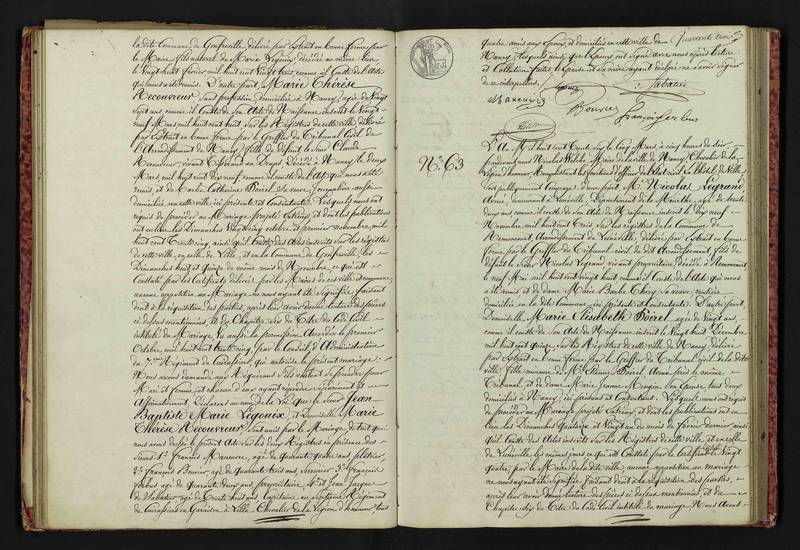 la dite Commune de Gonfreville, délivré par Extrait en bonne forme par
le Maire, fils naturel de Marie Légouix, décédée au même lieu
le Vingt huit février, mil huit cent Vingt
remis. D'autre part, Marie Thérèse
Recouvreur, sans profession, domiciliée à Nancy, âgée de Vingt
sept ans comme il conste de son Acte de Naissance inscrit le Vingt
neuf Mai, mil huit cent huit sur les Registres de cette ville, délivré
par Extrait en bonne forme par le Greffier du Tribunal Civil de
l'Arrondissement de Nancy, fille de défunt le Sieur Claude
Recouvreur, vivant
Mars, mil huit cent dix neuf comme il conste de l'acte qui nous a été
remis, et de Barbe Catherine Boirel sa veuve
domiciliée en cette ville, ici présente et Consentante. Lesquels nous ont
requis de procéder au Mariage projeté entr'eux, et dont les publications
ont eu lieu les Dimanches Vingt cinq octobre et premier novembre, mil
huit cent trente cinq, ainsi qu'il conste des actes inscrits sur les registres
de cette ville, en celle de Ville, et en la Commune de Gonfreville, les
Dimanches huit et Quinze du même mois de Novembre, ce qui est
Constaté par les Certificats délivrés par les Maires de ces ville et commune
aucune opposition au Mariage ne nous ayant été signifiée, faisant
droit à la réquisition des parties, après leur avoir donné lecture des pièces
ci dessus mentionnées, et du Chapitre six du Titre du Code Civil
intitulé du Mariage, vu aussi la permission accordée le premier
Octobre, mil huit cent trente cinq, par le Conseil d'Administration
du 7ème Régiment de Cuirassiers qui autorise le présent mariage.
Nous avons demandé aux Requérans s'ils veulent se prendre pour
Mari et femme, et chacun d'eux ayant répondu séparément et
Affirmativement, déclarons au nom de la Loi que le Sieur Jean
Baptiste Marie Légouix, et Demoiselle Marie
Thérèse Recouvreur, sont unis par le Mariage, de tout quoi
nous avons dressé le présent Acte sur les deux Registres en présence des
Sieurs 1° François Maneuvre, âgé de quarante quatre ans
2° François Bouvier, âgé de quarante trois ans Serrurier 3° François
âgé de quarante deux ans, propriétaire, 4° et Jean Jacques
de Sabatier, âgé de Trente huit ans, Capitaine au Septième Régiment
de Cuirassiers en Garnison à Ville Chevalier de la Légion d'honneur tous
quatre amis aux Epoux, et domiciliés en cette ville de
Nancy, lesquels ainsi que les Epoux, ont signé avec nous après lecture
et Collation faites, l'épouse et sa mère ayant déclaré ne savoir signer
de ce interpellées.
de Sabatier
N° 63
L'an Mil huit cent Trente six, le Cinq Mars à cinq heures du soir
pardevant nous Nicolas Maire de la ville de Nancy Chevalier de la
Légion d'honneur, Remplissant les fonctions d'officier de l'état civil en l'hôtel de Ville
sont publiquement comparus, d'une part, Mr Nicolas Legrand
Avoué, demeurant à Lunéville, Département de la Meurthe, âgé de trente
deux ans comme il conste de son Acte de Naissance inscrit le Dix neuf
Novembre, mil huit cent Trois, sur les registres de la Commune de
Arrondissement de Lunéville, délivré par Extrait en bonne
forme par le Greffier du Tribunal civil du dit Arrondissement, fils de
défunt le Sieur Nicolas Legrand vivant propriétaire, décédé à
le neuf Mai, mil huit cent vingt huit comme il conste de l'acte qui nous
a été remis, et de dame Marie Barbe sa veuve, rentière
domiciliée en la dite commune, ici présente et consentante. D'autre part,
Demoiselle Marie Elisabeth Boirel âgée de Vingt ans,
comme il conste de son Acte de Naissance inscrit le Vingt huit Décembre
mil huit cent quinze, sur les Registres de cette ville de Nancy, délivré
par Extrait en bonne forme par le Greffier du Tribunal civil de la dite
ville, fille mineure de Mr Boirel Avoué près le même
Tribunal et de dame Marie Jeanne Mangin son épouse, tous deux
domiciliés à Nancy, ici présens et consentans. Lesquels nous ont requis
de procéder au Mariage projeté entr'eux, et dont les publications ont eu
lieu les Dimanches Quatorze et Vingt un du mois de février dernier, ainsi
qu'il conste des actes inscrits sur les Registres de cette ville et en celle
de Lunéville les mêmes jours, ce qui est Constaté par le Certificat le Vingt
quatre, par le Maire de la dite ville, aucune opposition au mariage
ne nous ayant été signifiée, faisant droit à la réquisition des parties,
après leur avoir donné lecture des pièces ci dessus mentionnées et du
Chapitre six du Titre du Code Civil intitulé du mariage. Nous Avons